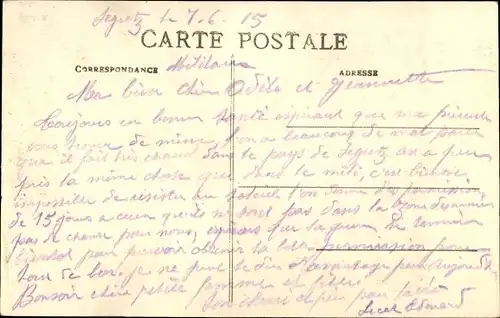 Segretz le 7.6.15
CARTE POSTALE
CORRESPONDANCE Militaire ADRESSE
Ma bien chère Odèle et Jeannette
Toujours en bonne santé espérant que ma présente
vous trouve de même. l'on a beaucoup de mal parce
que il fait très chaud dans le pays de Segretz on a peu
près la même chose que dans le midi, c'est bien
impossible de résister au soleil l'on donne des permissions
de 15 jours a ceux qui ne sont pas dans la zone
pas de chance pour nous, espérons que la guerre se termine
bientôt pour pouvoir obtenir la permission pour
tout de bon. je ne peut te dire d'avantage pour aujourd'h
Bonsoir chère petite femme et fillette
Ton cher et père pour
Edouard